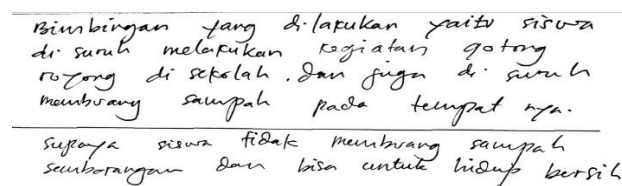 Bimbingan yang dilakukan yaitu siswa
di suruh melakukan kegiatan gotong
royong di sekolah, dan juga di suruh
membuang sampah pada tempat nya.
supaya siswa tidak membuang sampah
sembarangan dan bisa untuk hidup bersih